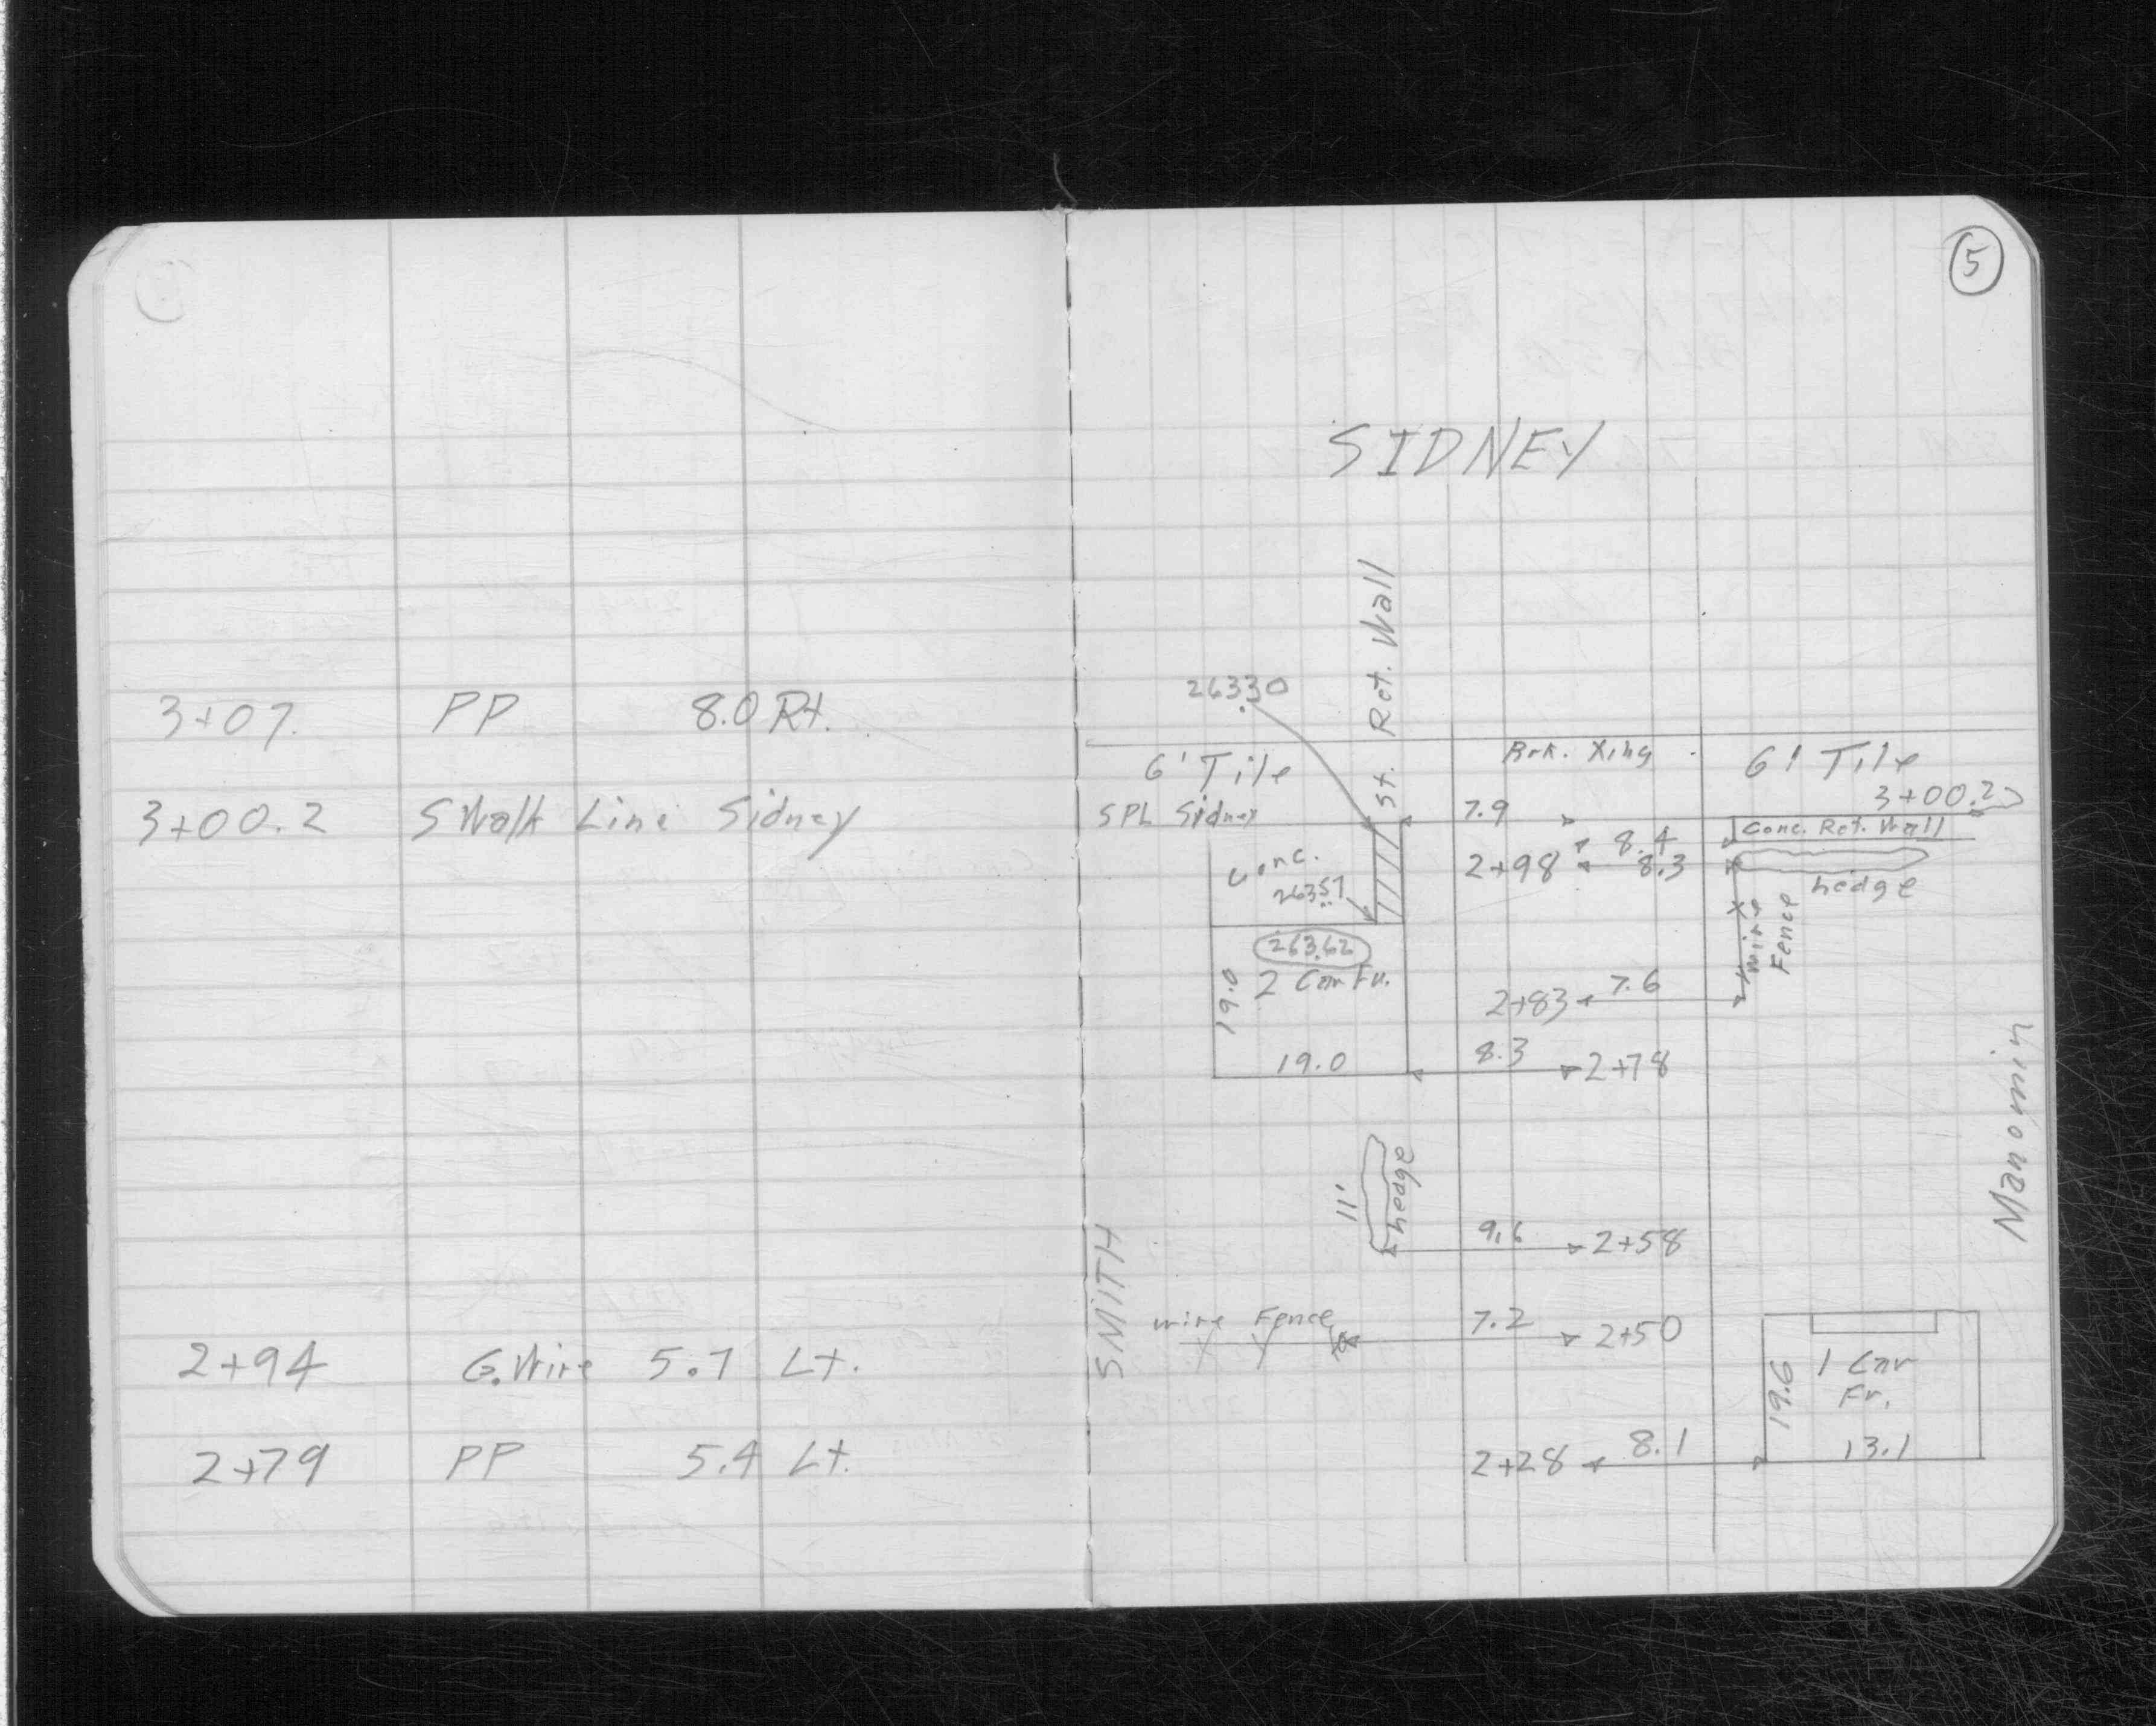 3+07. PP 8.0 Rt.
3+00.2 S Walk Line Sidney
2+94 G.Wire 5.7 Lt.
2+79 PP 5.4 Lt.
5
SIDNEY
St. Ret. Wall
263.30
6' Tile
Brk. Xing
6' Tile
3+00.2
SPL Sidney
7.9
Conc. Ret. Wall
8.4
2+98 8.3
hedge
Conc.
263.57
wire Fence
263.62
2 Car Fr.
19.0
19.0
2+83 7.6
8.3 2+78
Manomin
11'
hedge
9.6 2+58
SMITH
wire Fence
7.2 2+50
1 Car
Fr.
19.6
13.1
2+28 8.1